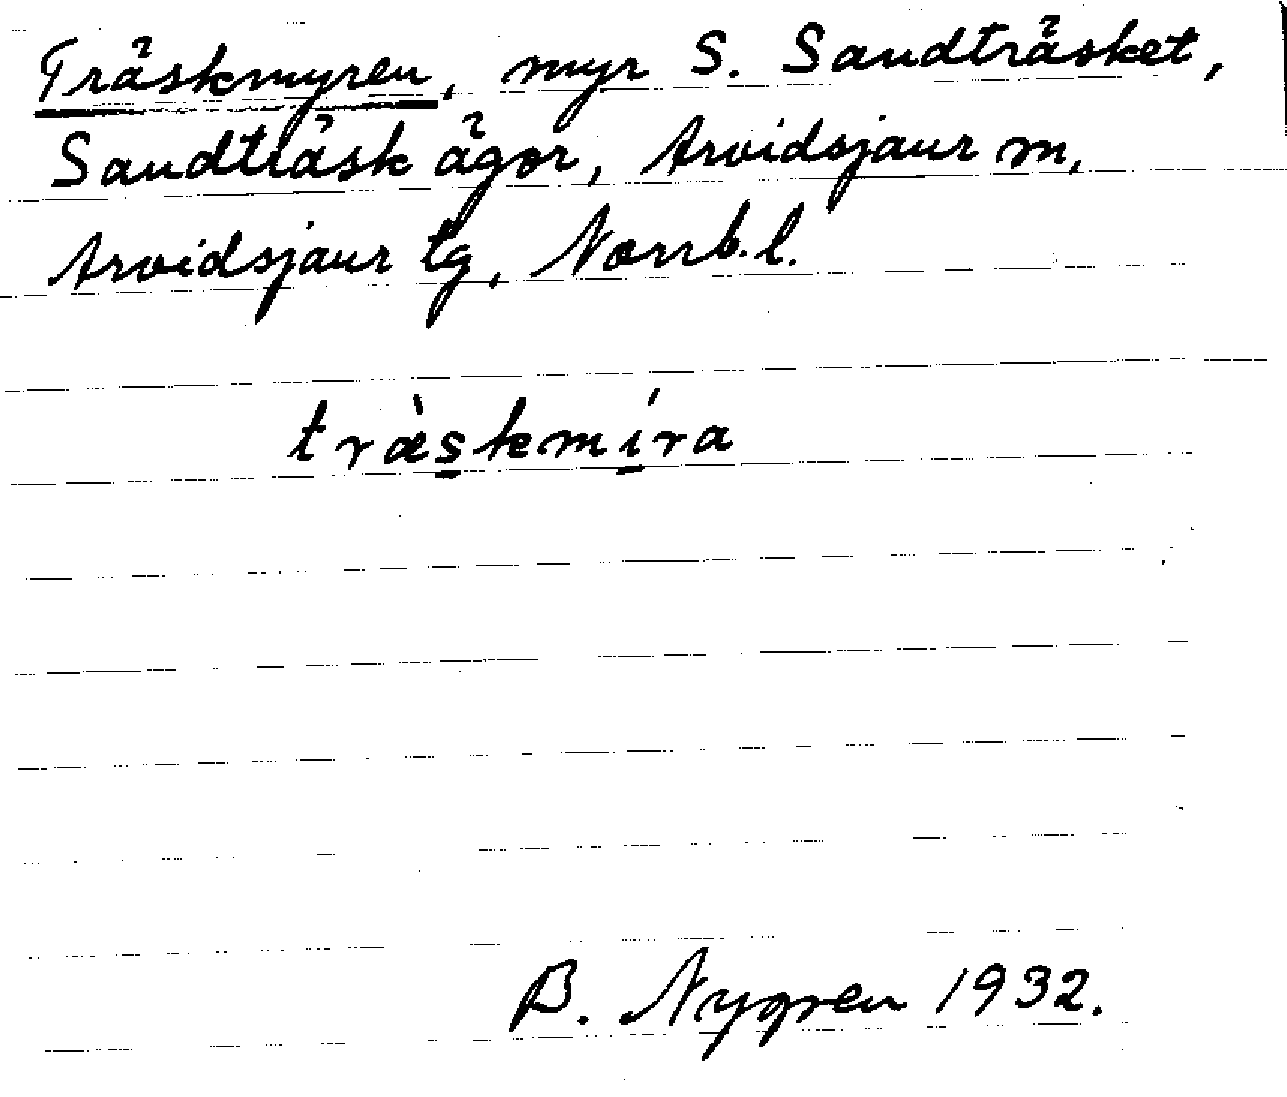 Träskmyren, myr S. Sandträsket,
Sandträsk ägor, Arvidsjaur sn,
Arvidsjaur tg, Norrb. l.
træ̀s̲kmí̲ra
B. Nygren 1932.